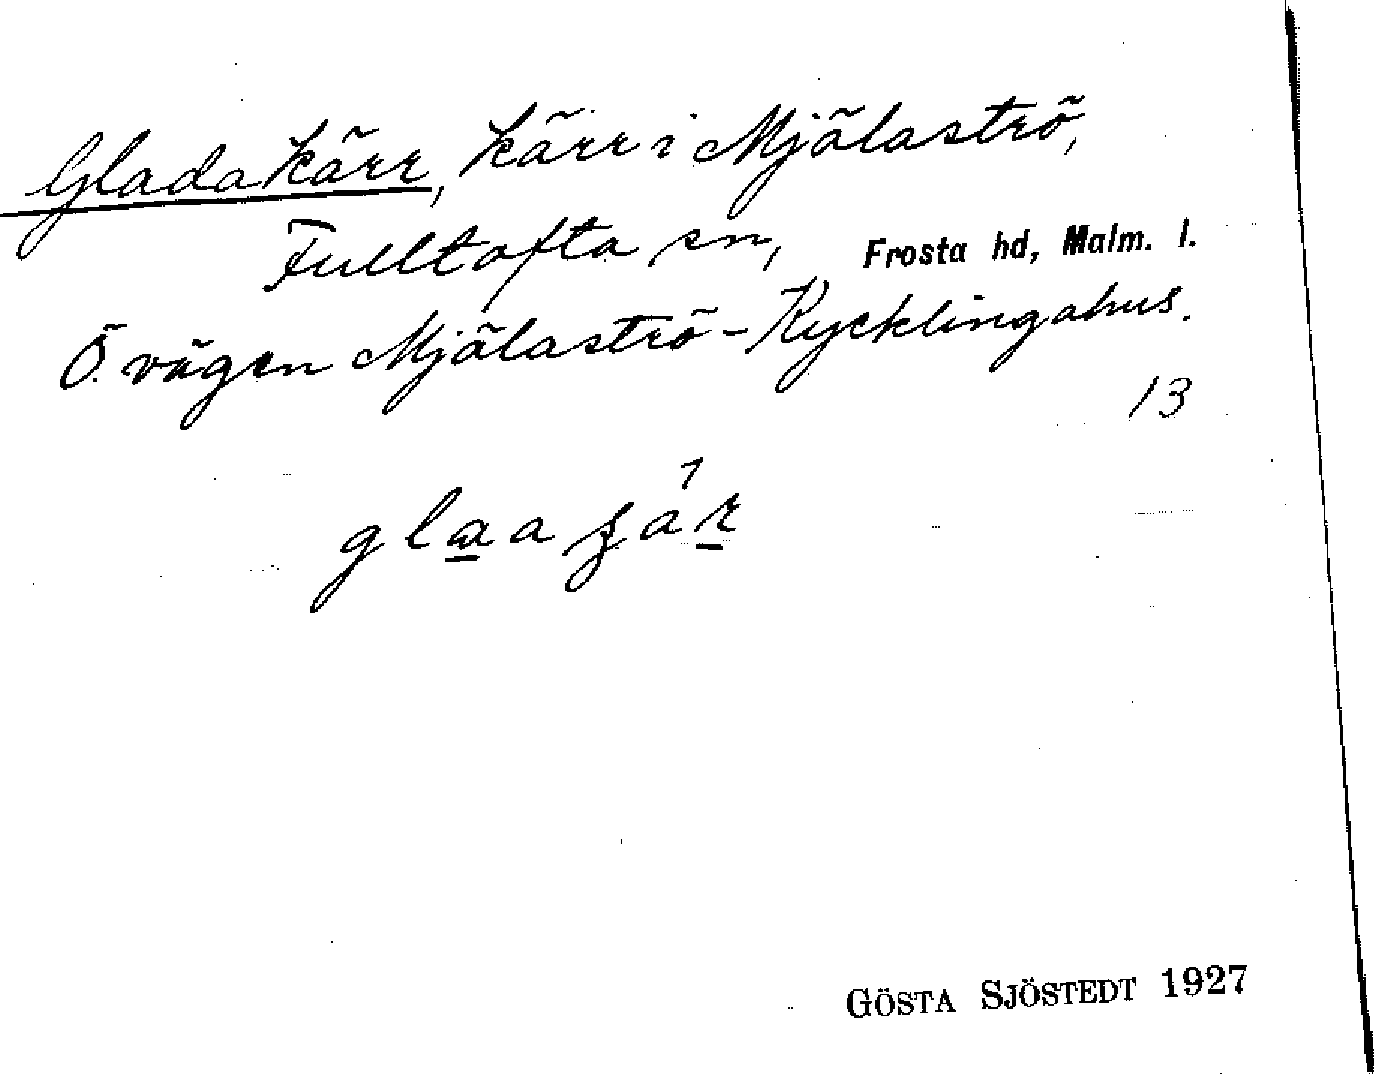 Glada kärr, kärr i Mjälaströ,
Fulltofta sn, Frosta hd, Malm. l.
Ö. vägen Mjälaströ-Kycklingahus.
13
GÖSTA SJÖSTEDT 1927